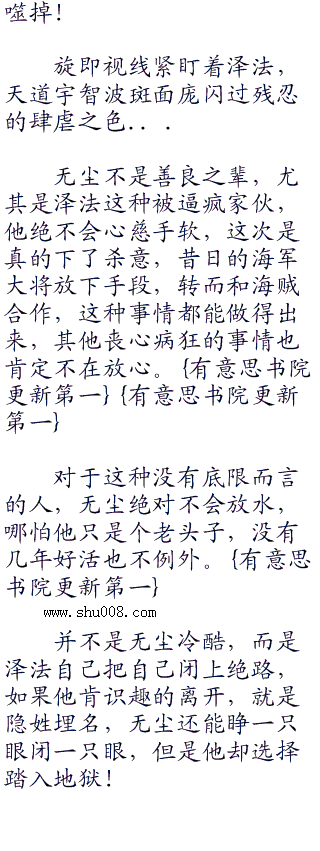 噬掉！
旋即视线紧盯着泽法，
天道宇智波斑面庞闪过残忍
的肆虐之色．．．
无尘不是善良之辈，尤
其是泽法这种被逼疯家伙，
他绝不会心慈手软，这次是
真的下了杀意，昔日的海军
大将放下手段，转而和海贼
合作，这种事情都能做得出
来，其他丧心病狂的事情也
肯定不在放心。{有意思书院
更新第一}{有意思书院更新
第一}
对于这种没有底限而言
的人，无尘绝对不会放水，
哪怕他只是个老头子，没有
几年好活也不例外。{有意思
书院更新第一}
www.shu008.com
并不是无尘冷酷，而是
泽法自己把自己闭上绝路，
如果他肯识趣的离开，就是
隐姓埋名，无尘还能睁一只
眼闭一只眼，但是他却选择
踏入地狱！